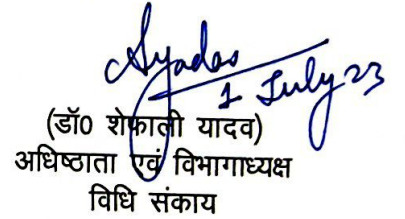 Syadas
1 July 23
(डॉ0 शेफाली यादव)
अधिष्ठाता एवं विभागाध्यक्ष
विधि संकाय